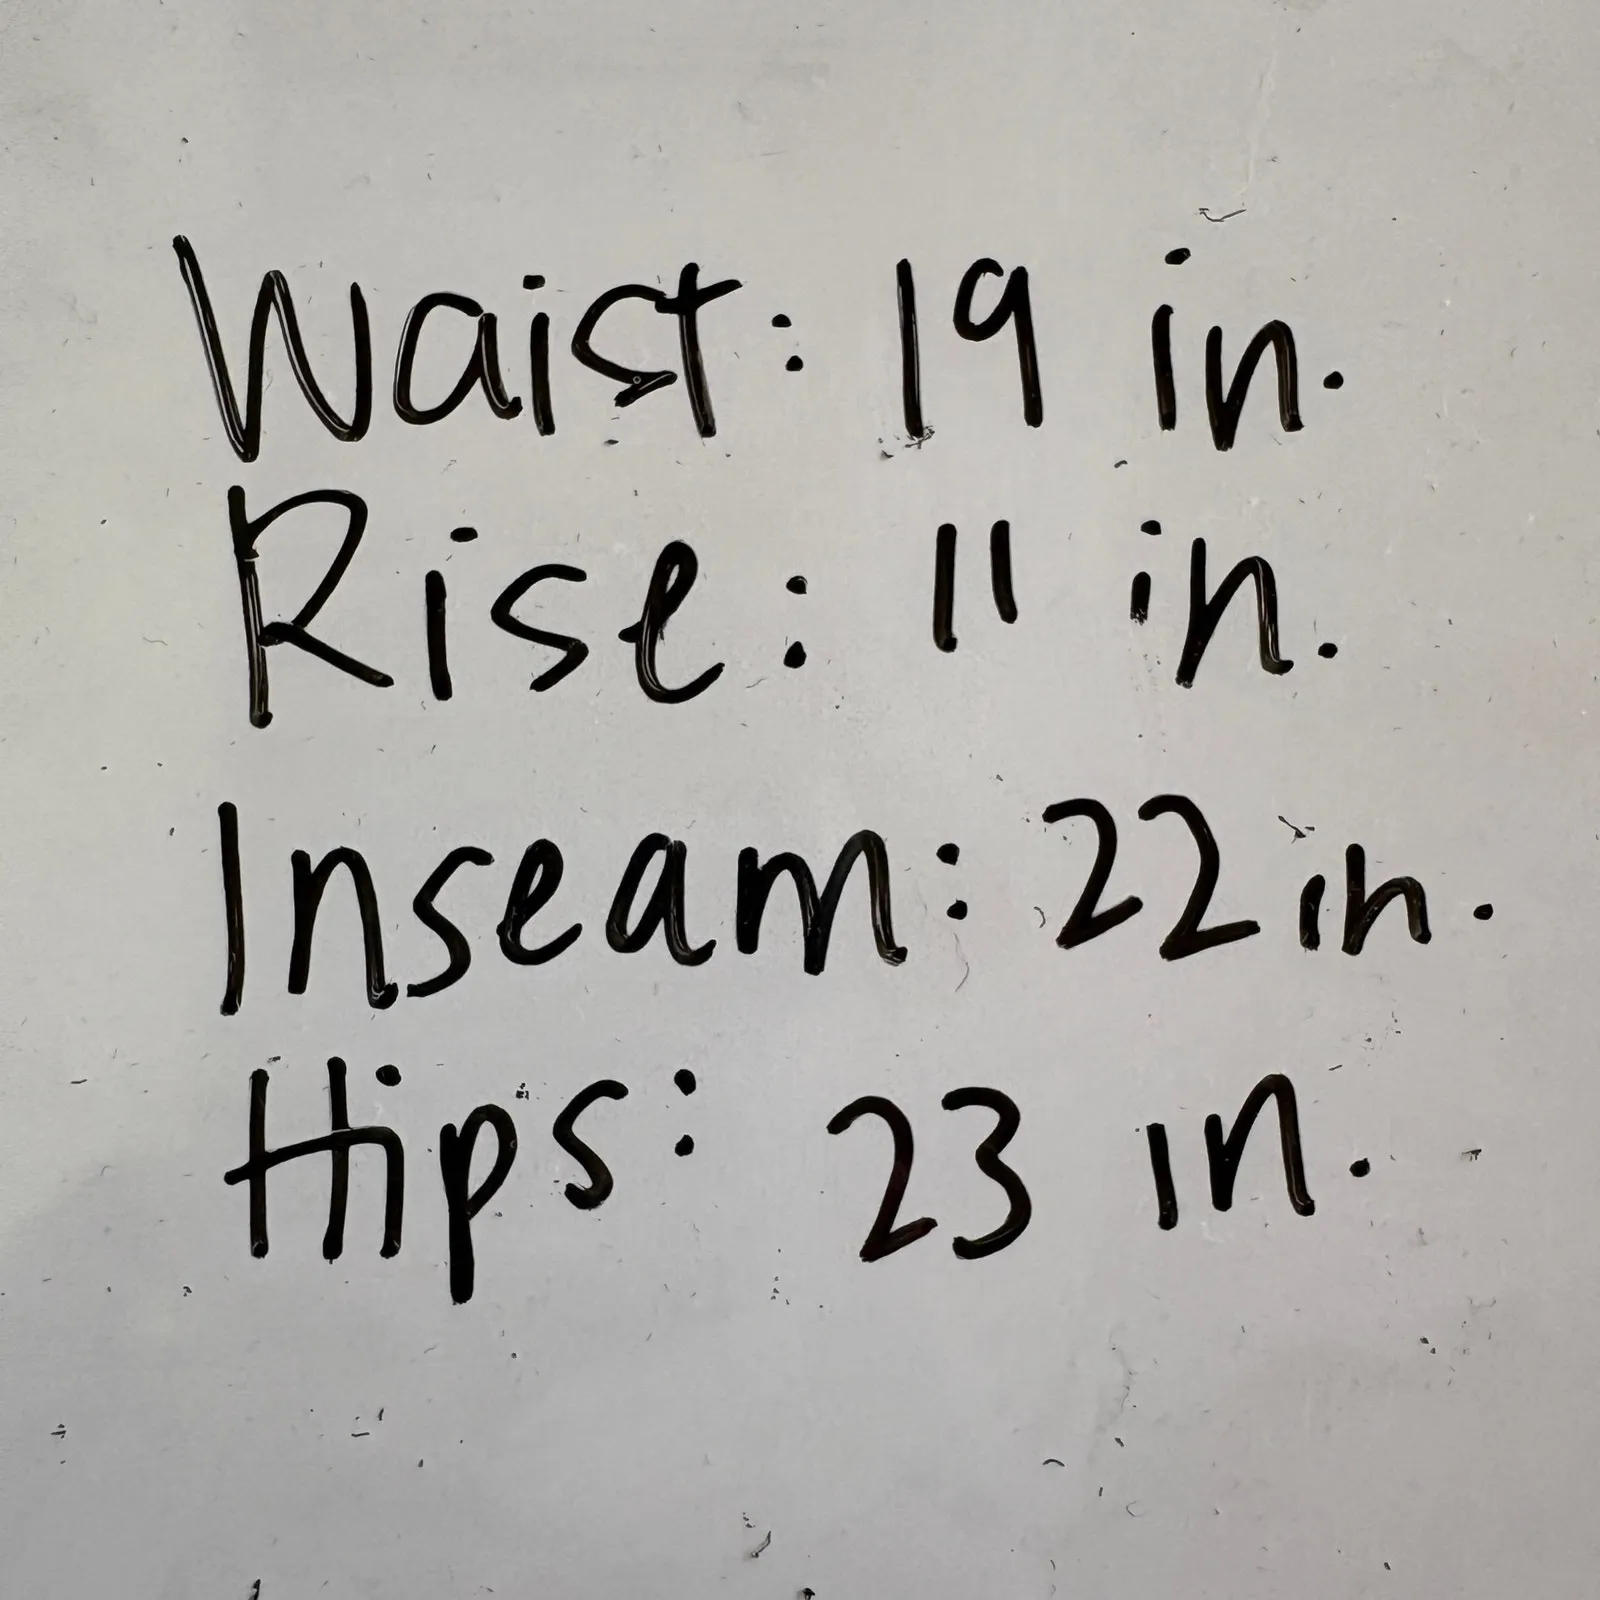 Waist: 19 in.
Rise: 11 in.
Inseam: 22 in.
Hips: 23 in.